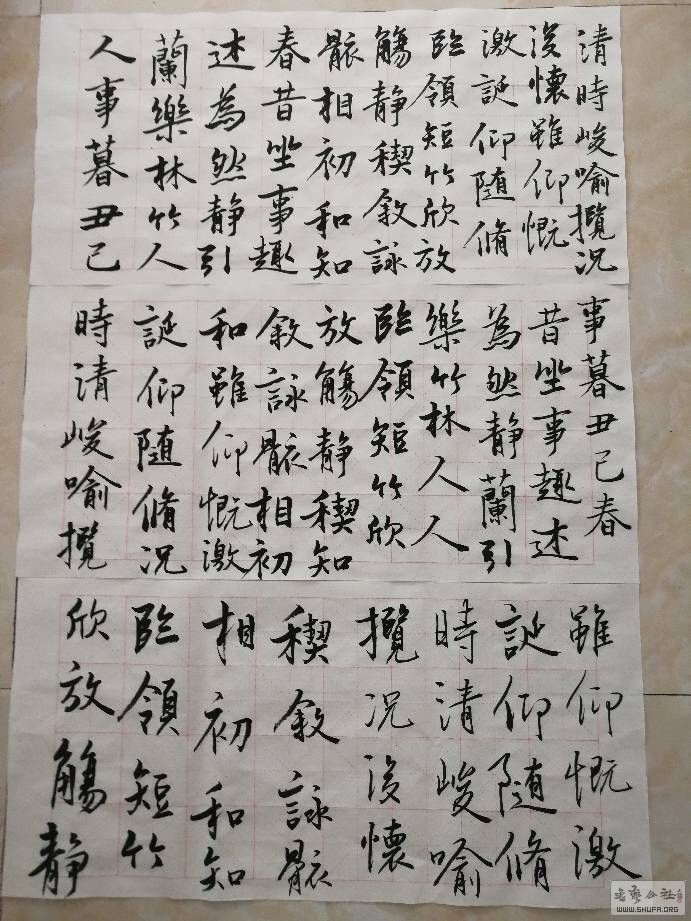 清時峻喻攬况
後懷雖仰慨
激誕仰随脩
臨領短竹欣放
觴静稧敘詠
骸相初和知
春昔坐事趣
述為然静引
蘭樂林竹人
人事暮丑已
事暮丑已春
昔坐事趣述
為然静蘭引
樂竹林人人
臨領短竹欣
放觴静稧知
敘詠骸相初
和雖仰慨激
誕仰随脩况
時清峻喻攬
雖仰慨激
誕仰随脩
時清峻喻
攬况後懷
稧敘詠骸
相初和知
臨領短竹
欣放觴静
书艺公社
WWW.SHUFA.ORG